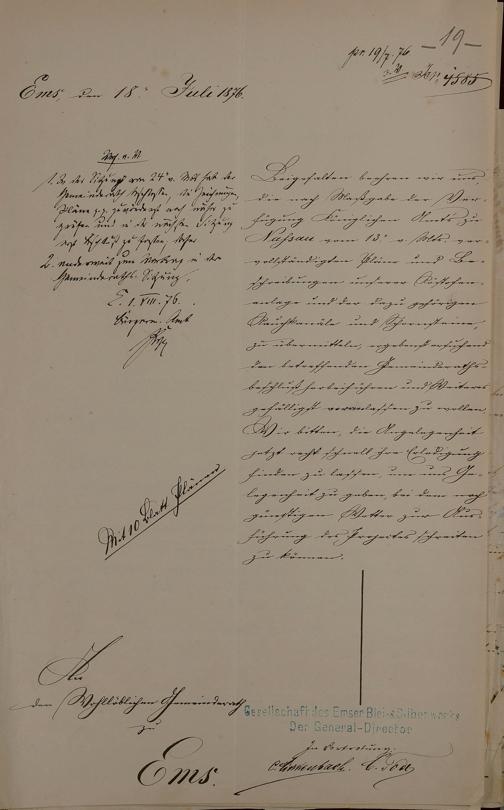 -19-
pr. 19/7. 76.
4505
Ems, den 18. Juli 1876.
1. In der Sitzung vom 24 v. Mts hat der
Gemeinderath beschlossen, die Zeichnungen,
Pläne p.p. zuvörderst noch näher zu
prüfen und in der nächsten Sitzung
Beschluß zu fassen, daher
2. anderweit zum Vortrag in der
Gemeinderaths-Sitzung.
E. 1. VIII. 76.
Bürgerm. Amt
Beigefalten beehren wir uns,
die nach Maßgabe der Ver-
fügung Königlichen Amts zu
Nassau vom 13. v. Mts. ver-
vollständigten Pläne und Be-
schreibungen unserer
anlage und der dazu gehörigen
Rauchkanäle und Schornsteine,
zu übermitteln, ergebenst ersuchend
den betreffenden Gemeinderaths-
beschluß herbeiführen und Weiteres
gefälligst veranlassen zu wollen.
Wir bitten, die Angelegenheit
jetzt recht schnell ihre Erledigung
finden zu lassen, um uns Ge-
legenheit zu geben, bei dem noch
günstigen Wetter zur Aus-
führung des Projectes schreiten
zu können.
Mit 10 Blatt Plänen
An
den Wohllöblichen Gemeinderath
zu
Ems.
Gesellschaft des Emser Blei-& Silberwerks
Der General-Director
In Vertretung: